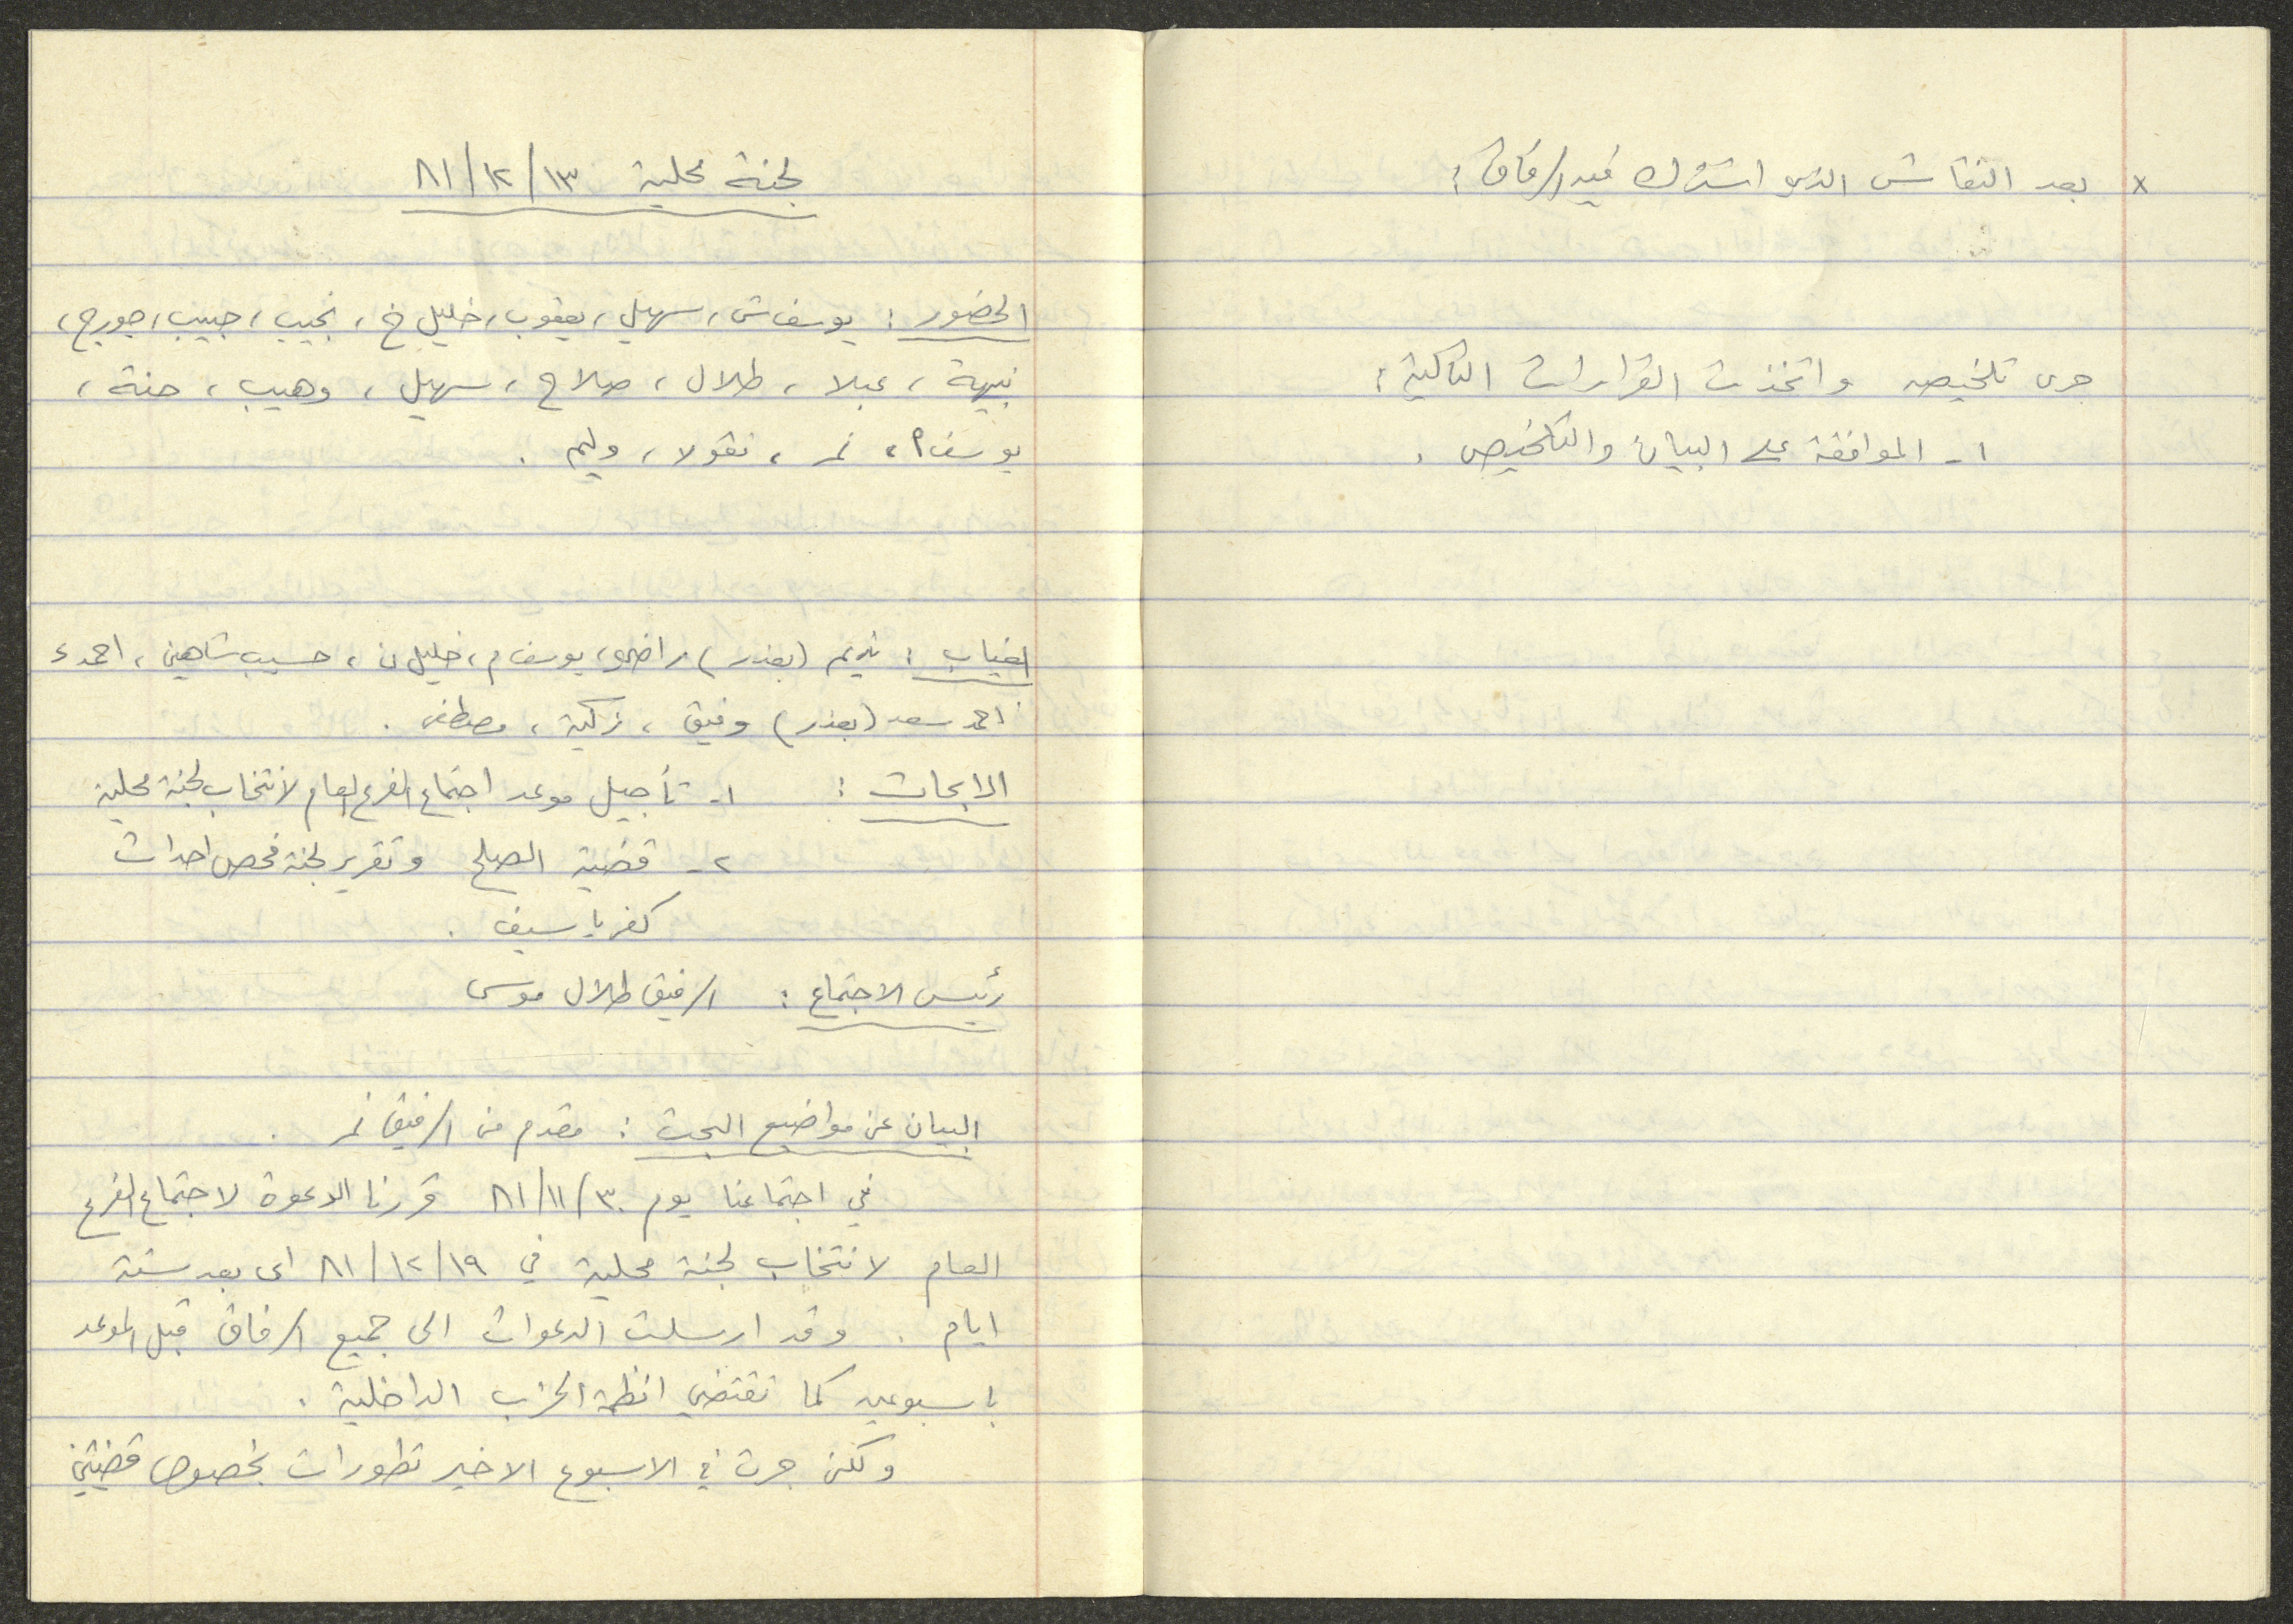 × بعد النقاش الذي اشترك فيه الرفاق :
جرى تلخيصه واتخذت القرارات التالية :
١- الموافقة على البيان والتلخيص .
لجنة محلية ١٣/١٢/٨١
الحضور : يوسف ش، سهيل، يعقوب، خليل خ، نجيب، حبيب، جورج،
نبيهة، عبلا، طلال، صلاح، سهيل، وهيب، حنة،
يوسف، نمر، نقولا، وليم .
الغياب : نديم (بعذر) راضي، يوسف م، خليل ن، حسيب شاهين، احمد
احمد سعد (بعذر) وفيق، زكية، مصطفى .
الابحاث : ١- تأجيل موعد اجتماع الفرع العام لانتخاب لجنة محلية
٢- قضية الصلح وتقرير لجنة فحص احداث
كفرياسيف .
رئيس الاجتماع : الرفيق طلال موسى
البيان عن مواضيع البحث : مقدم من الرفيق نمر .
في اجتماعنا يوم ٣٠/١١/٨١ قررنا الدعوة لاجتماع الفرع
العام لانتخاب لجنة محلية في ١٩/١٢/٨١ اى بعد ستة
ايام . وقد ارسلت الدعوات الى جميع الرفاق قبل الموعد
باسبوعين كما تقتضي انظمة الحزب الداخلية .
ولكن جرت في الاسبوع الاخير تطورات بخصوص قضيتي